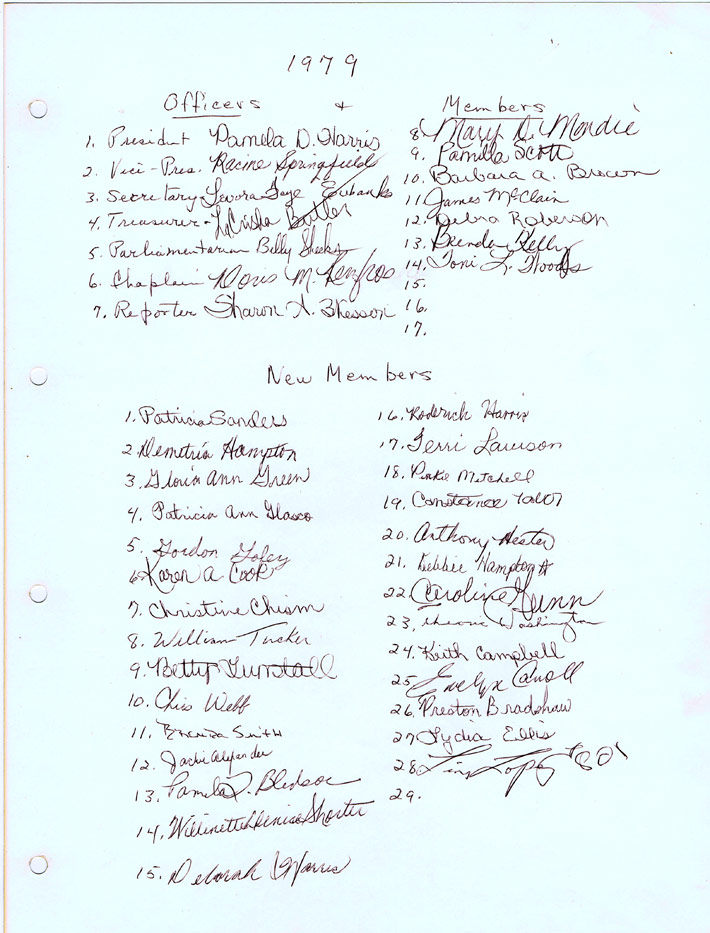 1979
Officers & Members
1. President Pamela D. Harris
2. Vice-Pres. Racine Springfield
3. Secretary- Faye Eubanks
4. Treasurer- LaCrisha Butler
5. Parliamentarian Billy Sheeks
6. Chaplain Doris M. Renfros
7. Reporter Sharon A.
8. Mary D. Mondie
9. Pamilla Scott
10. Barbara A. Brown
11. James McClain
12. Debra Roberson
13. Brenda Kelly
14. Toni L. Woods
15.
16.
17.
New Members
1. Patricia Sanders
2. Demetria Hampton
3. Gloria Ann Green
4. Patricia Ann Glasco
5. Gordon
6. Karen A. Cook
7. Christine Chism
8. William Tucker
9. Betty Tunstall
10. Chis Webb
11. Brenda Smith
12. Jackie Alexander
13. Pamela D. Bledsoe
14. Willinette Denise Shorter
15. Deborah Harris
16. Roderick Harris
17. Terri Lawson
18. Pinkie Mitchell
19. Constance
20. Anthony Hester
21. Debbie Hampton
22. Caroline Gunn
23. Washington
24. Keith Campbell
25. Evelyn Carroll
26. Preston Bradshaw
27. Lydia Ellis
28. "80"
29.